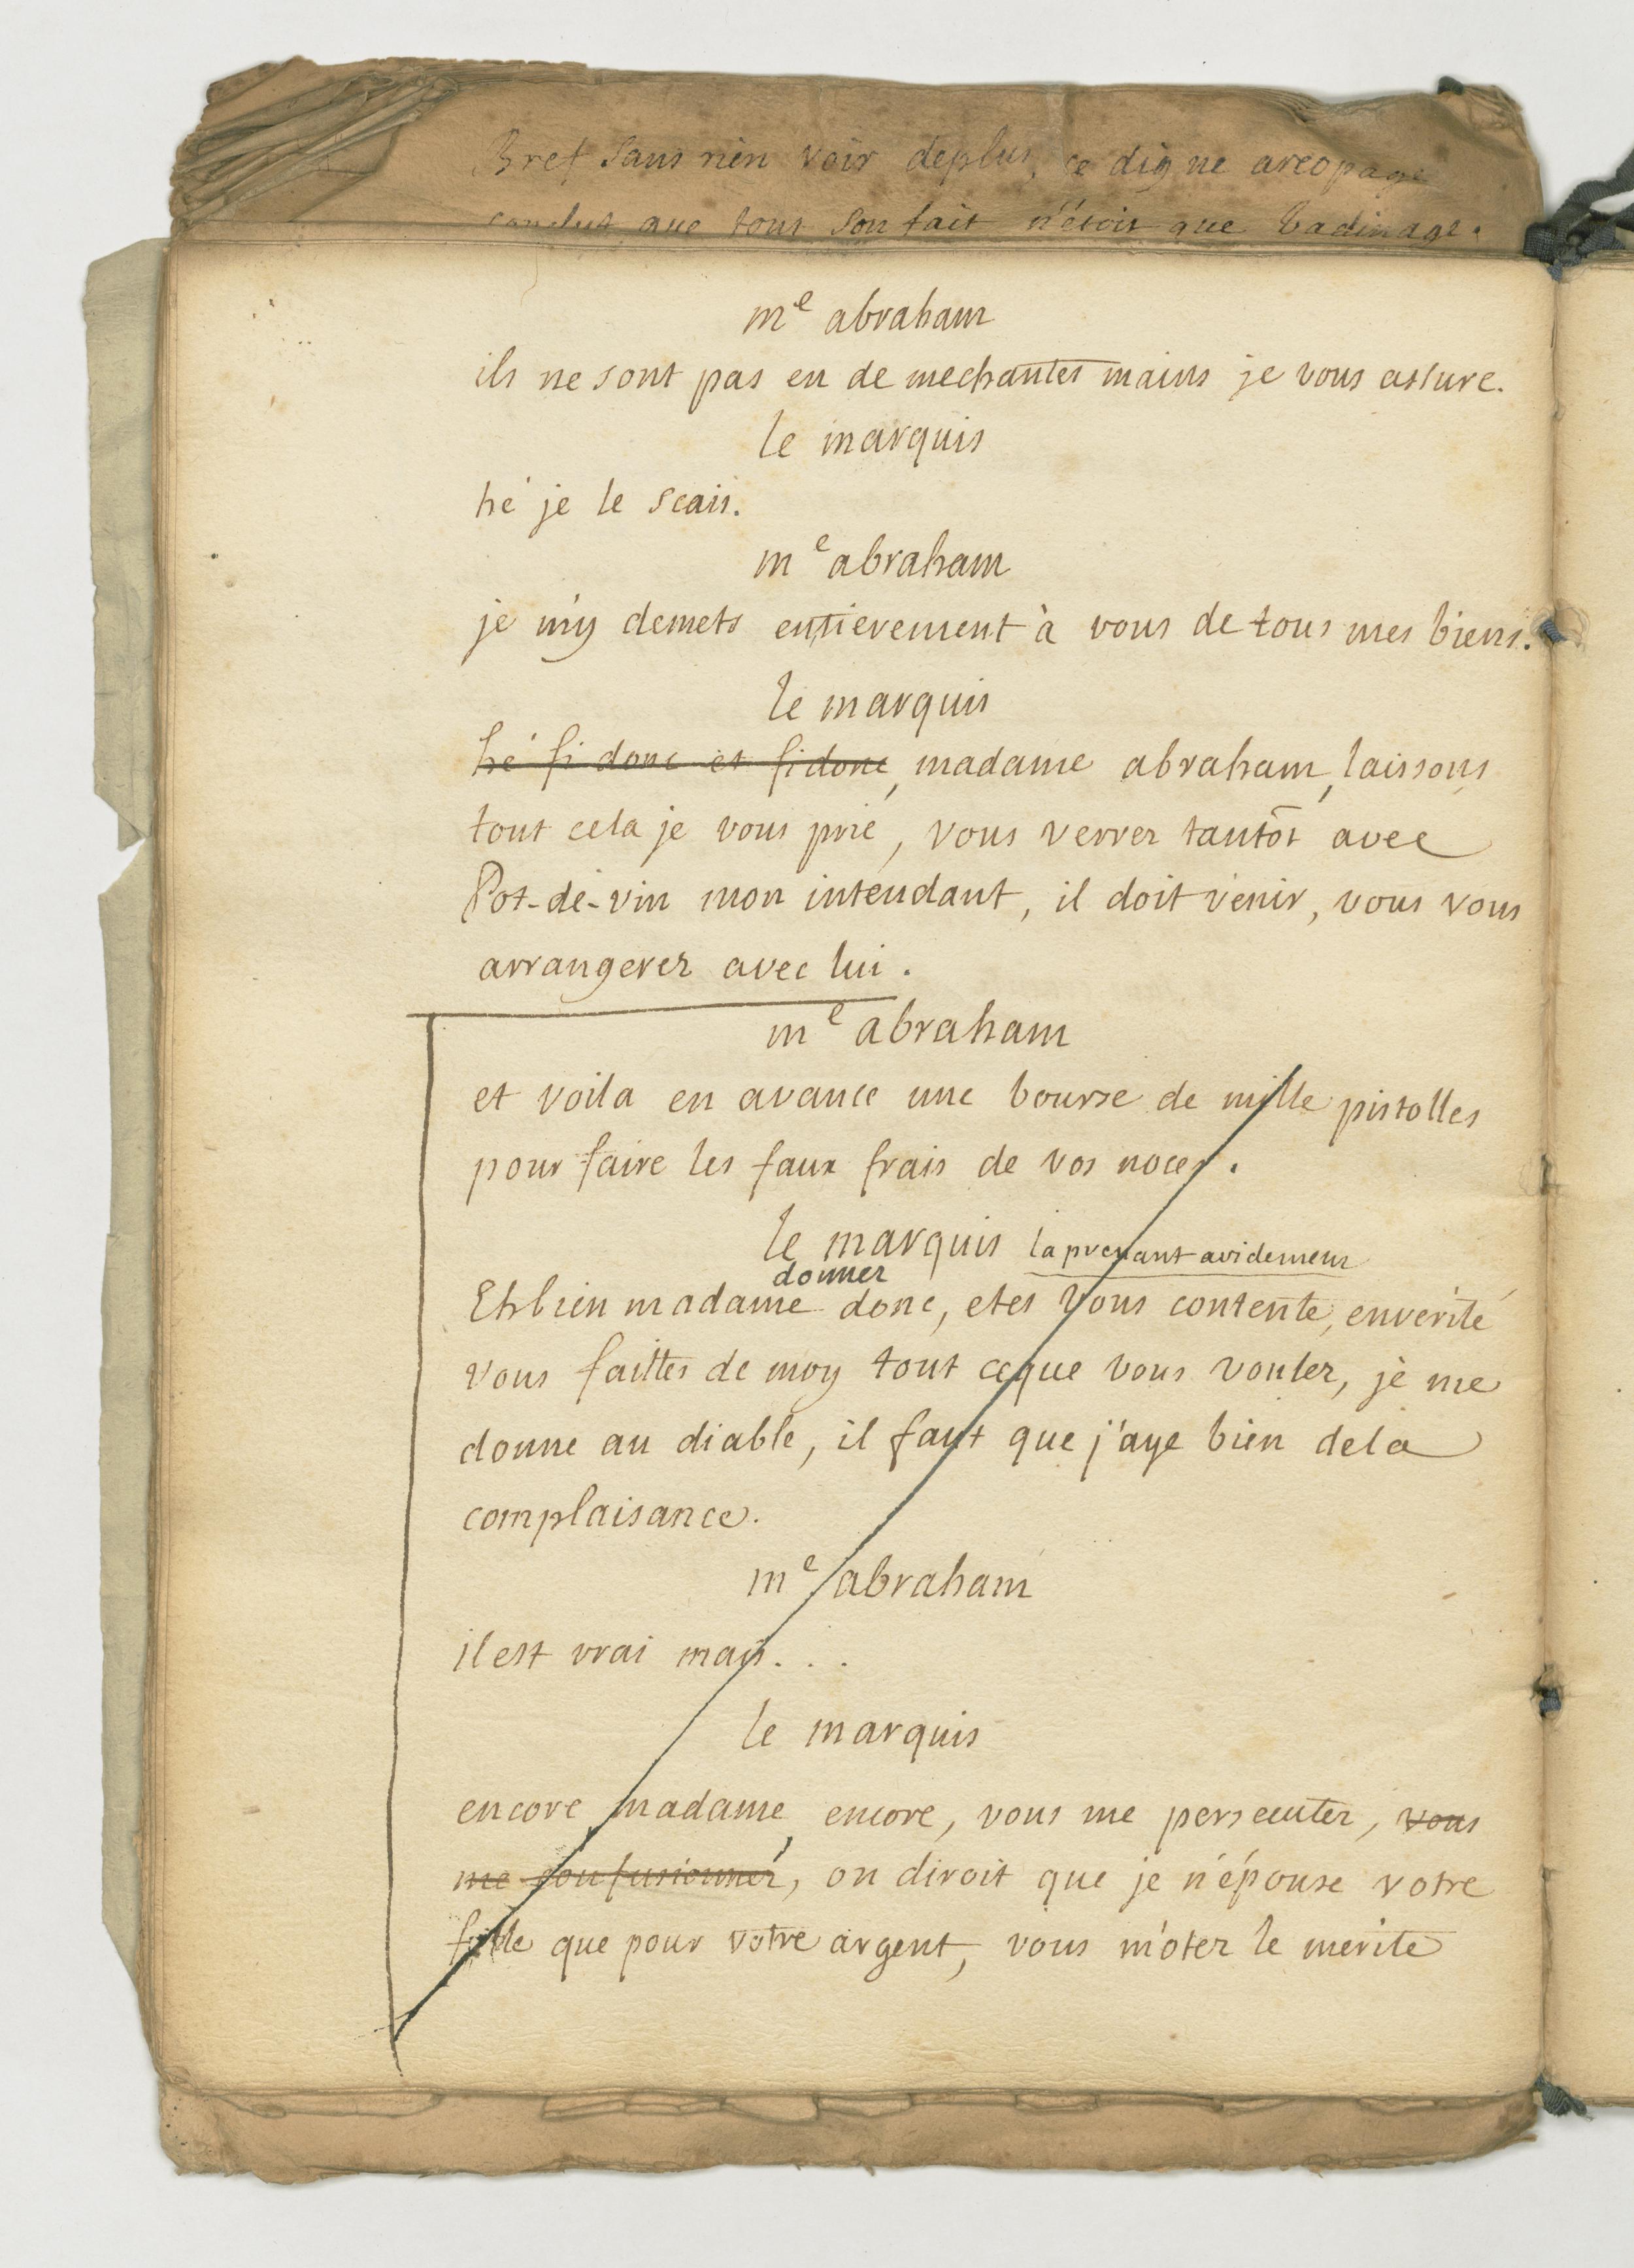 Bref sans rien voir deplus, ce digne areopage
conclut que tout son fait n'étoit que badinage.
me abraham
ils ne sont pas en de mechantes mains je vous assure.
le marquis
hé je le scais.
me abraham
je m'y demets entierement à vous de tous mes biens.
le marquis
hé fi donc et fi donc, madame abraham, laissons
tout cela je vous prie, vous verrez tantôt avec
Pot-de-vin mon intendant, il doit venir, vous vous
arrangerez avec lui.
me abraham
et voila en avance une bourse de mille pistolles
pour faire les faux frais de vos noces.
le marquis la prenant avidement
donnez
Eh bien madame donc, etes vous contente, en verité
vous faittes de moy tout ceque vous voulez, je me
donne au diable, il faut que j'aye bien dela
complaisance.
me abraham
il est vrai mais...
le marquis
encore madame, encore, vous me persecutez, vous
me confusionnez, on diroit que je n'épouse votre
fille que pour votre argent, vous m'otez le merite